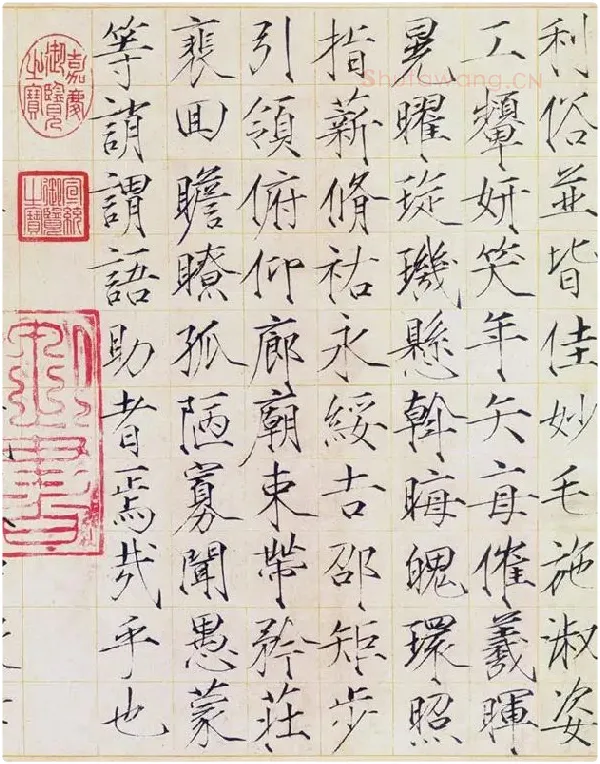 利俗並皆佳妙毛施淑姿
工顰妍笑年矢每催羲暉
晃曜璇璣懸斡晦魄環照
指薪脩祐永綏吉邵矩步
引領俯仰廊廟束帶矜莊
裵囬瞻瞭孤陋寡聞愚蒙
等誚謂語助者焉哉乎也
嘉慶御覽之寶
宣統御覽之寶
Shufawang.CN